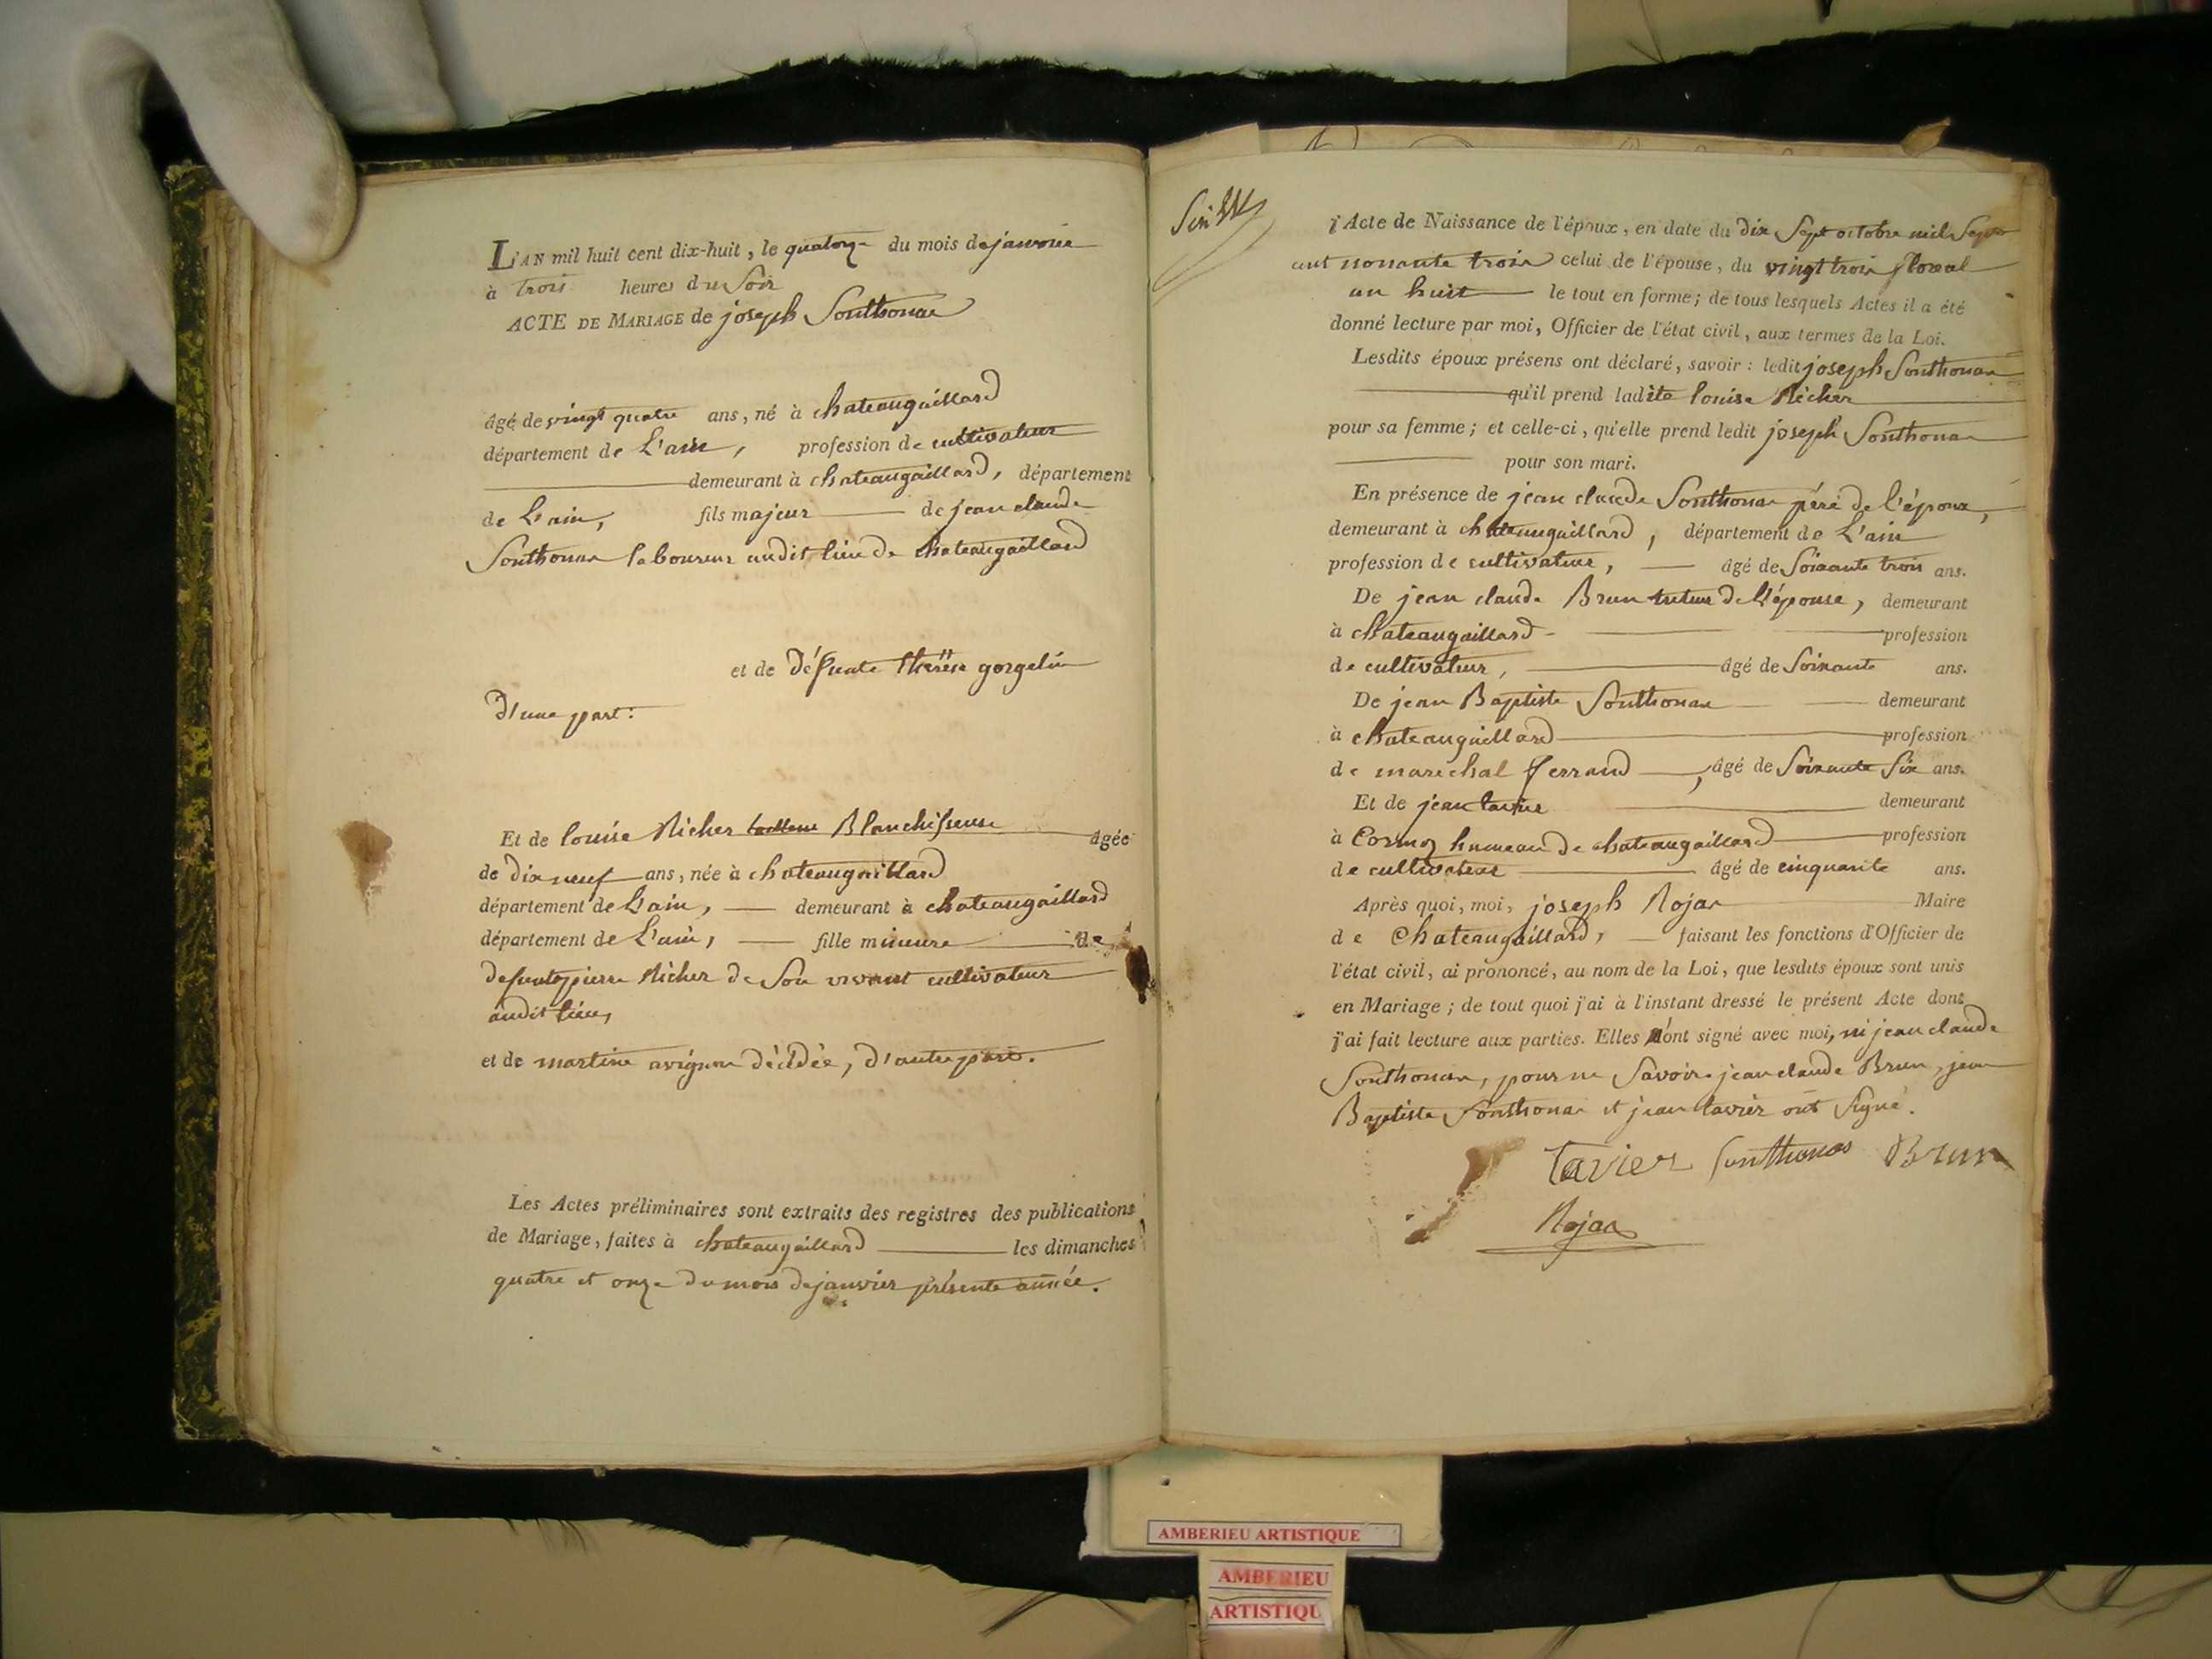 L'AN mil huit cent dix-huit, le quatorze du mois de janvier
à trois heures du Soir
ACTE DE MARIAGE de joseph Sonthonax
âgé de vingt quatre ans, né à chateaugaillard
département de L'ain, profession de cultivateur
demeurant à chateaugaillard, département
de L'ain, fils majeur de jean claude
Sonthonax laboureur audit lieu de chateaugaillard
et de défunte thérèse gorgelin
d'une part:
Et de louise Richer Blanchisseuse âgée
de dix neuf ans, née à chateaugaillard
département de L'ain, demeurant à chateaugaillard
département de L'ain, fille mineure de
defunt pierre Richer de Son vivant cultivateur
audit lieu,
et de martine avignon décédée, d'autre part.
Les Actes préliminaires sont extraits des registres des publications
de Mariage, faites à chateaugaillard les dimanches
quatre et onze du mois de janvier présente année.
l'Acte de Naissance de l'époux, en date du dix Sept octobre mil Sept
cent nonante trois celui de l'épouse, du vingt trois floreal
an huit le tout en forme; de tous lesquels Actes il a été
donné lecture par moi, Officier de l'état civil, aux termes de la Loi.
Lesdits époux présens ont déclaré, savoir: ledit joseph Sonthonax
qu'il prend ladite louise Richer
pour sa femme; et celle-ci, qu'elle prend ledit joseph Sonthonax
pour son mari.
En présence de jean claude Sonthonax père de l'époux,
demeurant à chateaugaillard, département de L'ain
profession de cultivateur, âgé de Soixante trois ans.
De jean claude Brun tuteur de L'épouse, demeurant
à chateaugaillard profession
de cultivateur, âgé de Soixante ans.
De jean Baptiste Sonthonax demeurant
à chateaugaillard profession
de maréchal ferrand, âgé de Soixante Six ans.
Et de jean tavier demeurant
à Cormoz hameau de chateaugaillard profession
de cultivateur âgé de cinquante ans.
Après quoi, moi, joseph Rojat Maire
de Chateaugaillard, faisant les fonctions d'Officier de
l'état civil, ai prononcé, au nom de la Loi, que lesdits époux sont unis
en Mariage; de tout quoi j'ai à l'instant dressé le présent Acte dont
j'ai fait lecture aux parties. Elles n'ont signé avec moi, ni jean claude
Sonthonax, pour ne Savoir. jean claude Brun, jean
Baptiste Sonthonax et jean tavier ont Signé.
Tavier Sonthonas Brun
Rojat
AMBERIEU ARTISTIQUE
AMBERIEU
ARTISTIQU